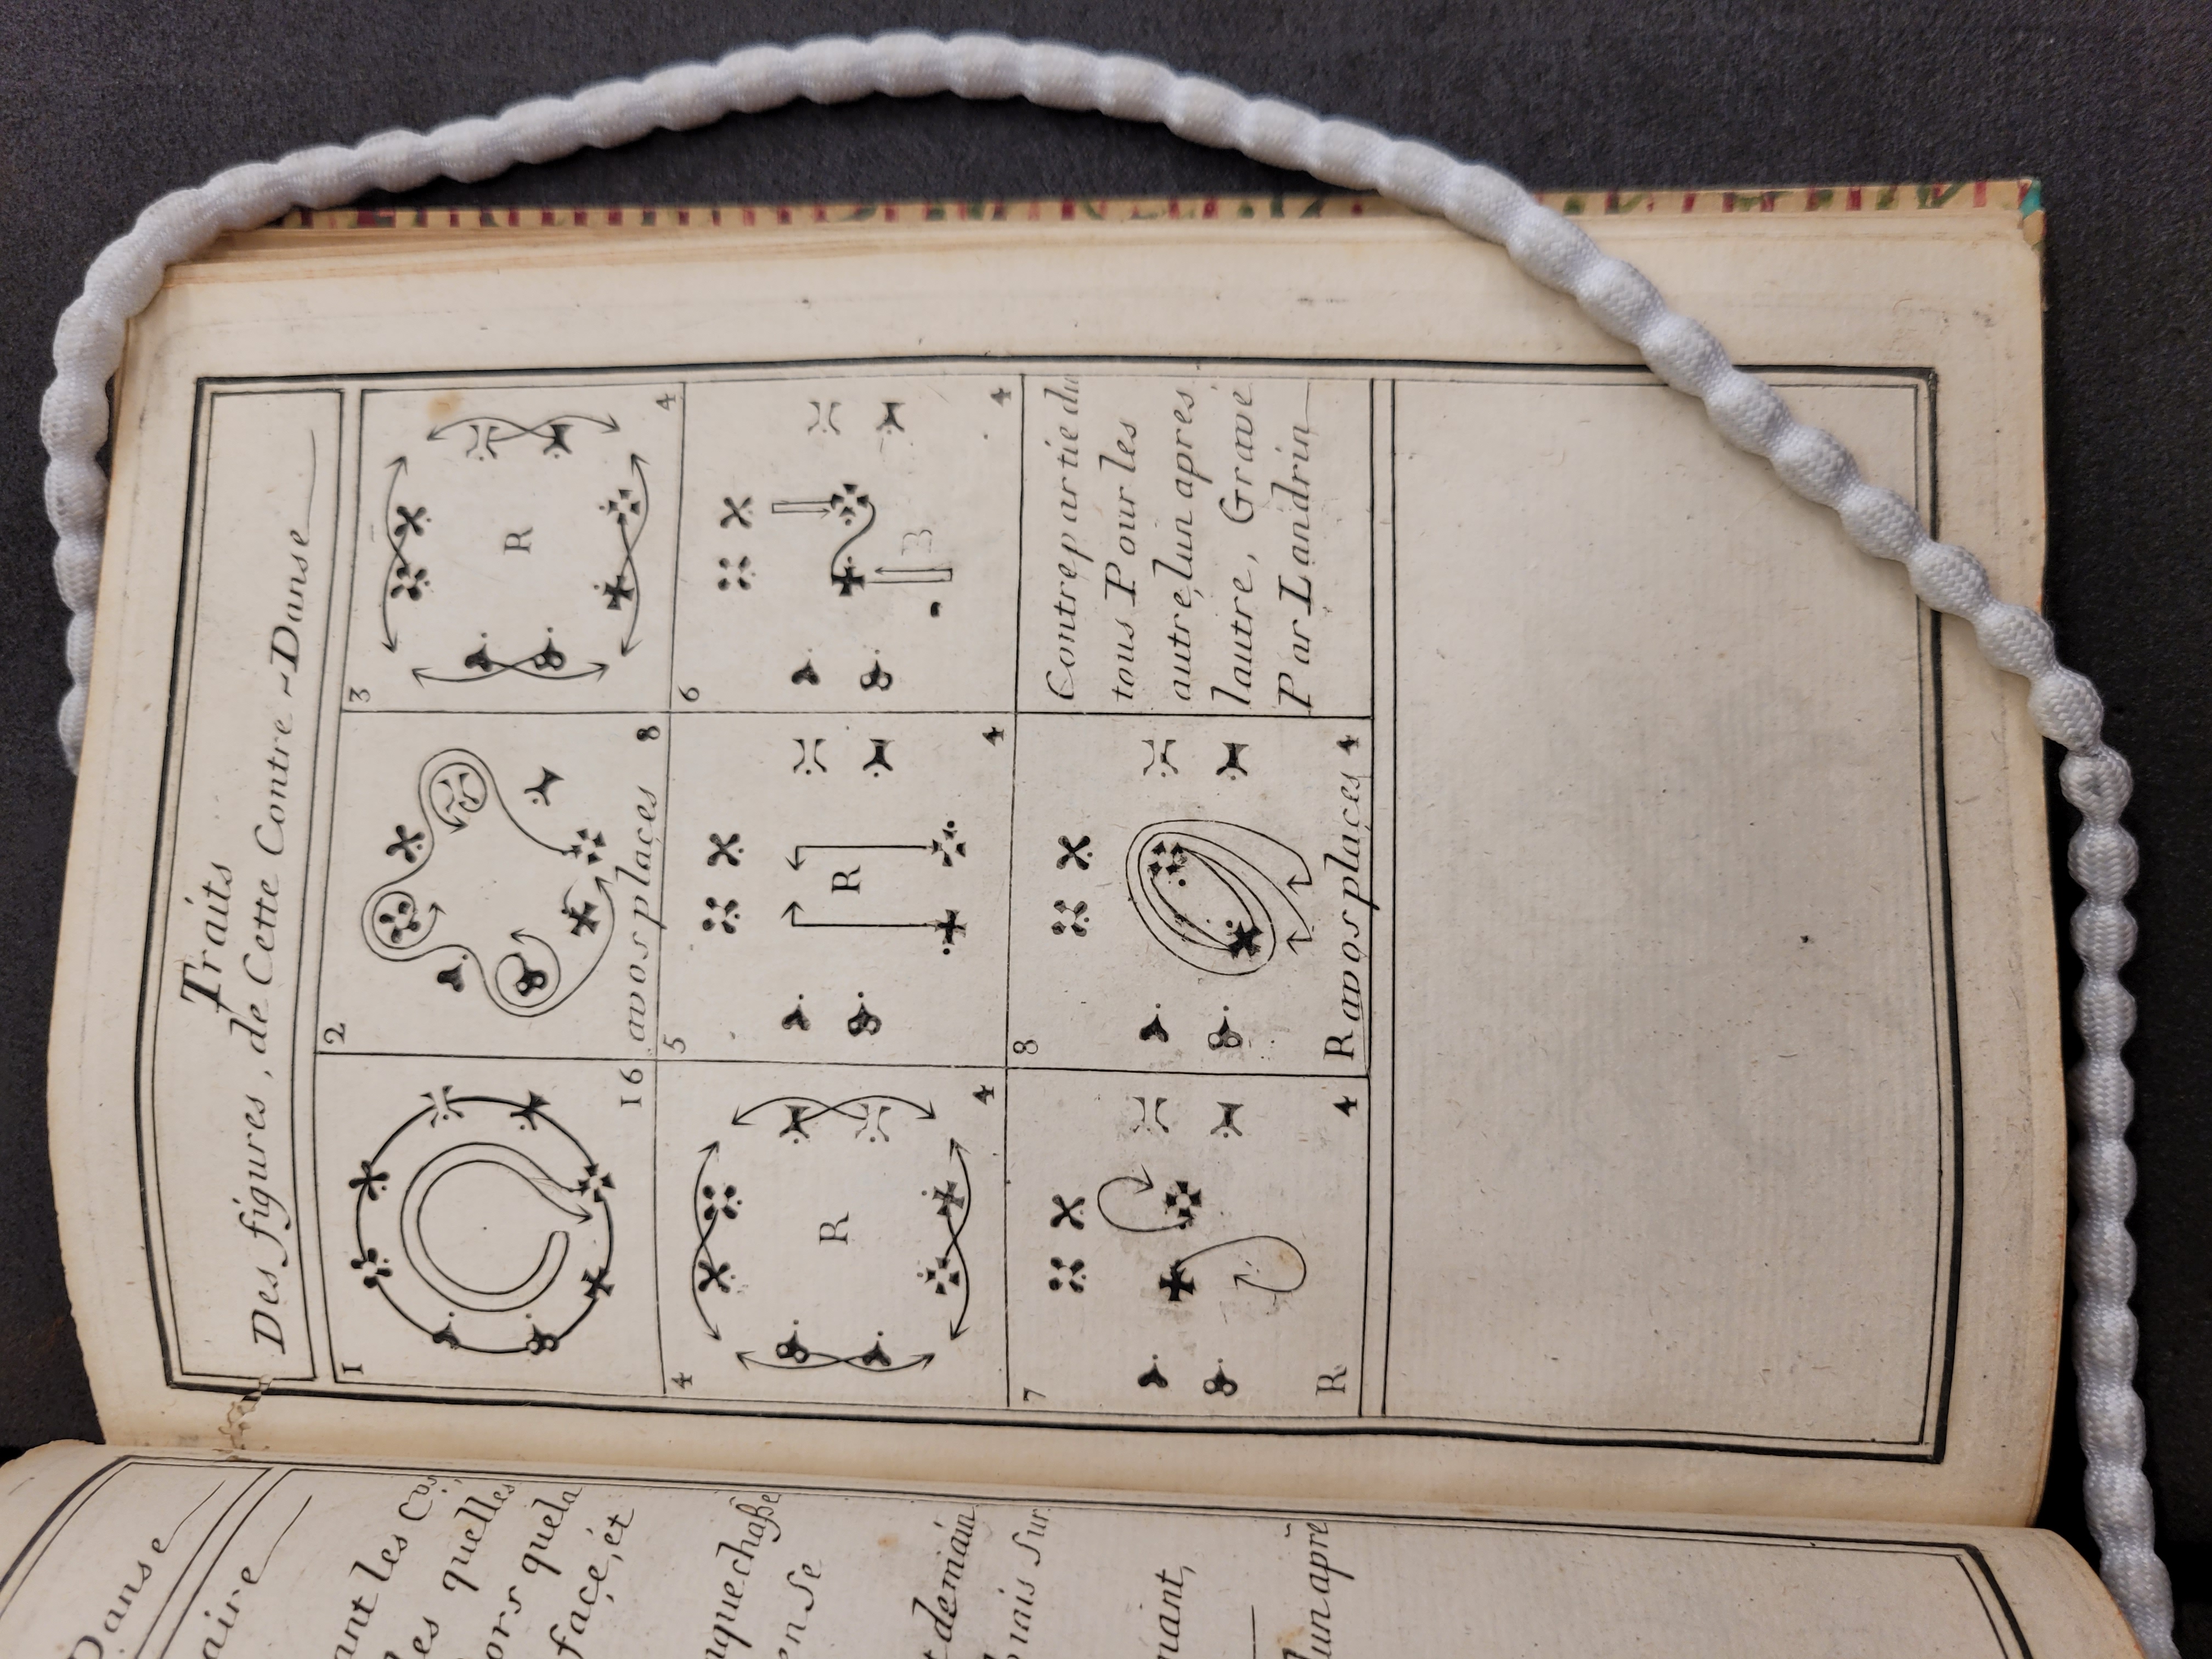 Traits
Des figures, de Cette Contre-Danse
1
16
2
avos places 8
3
R
4
4
R
4
5
R
4
6
4
7
R
4
8
R avos places 4
Contrepartie du
tous Pour les
autre, lun apres
lautre, Gravé
Par Landrin
Danse
aire
les
quelles
ors quela
face, et
en se
demain
mais sur
lun apr̃e